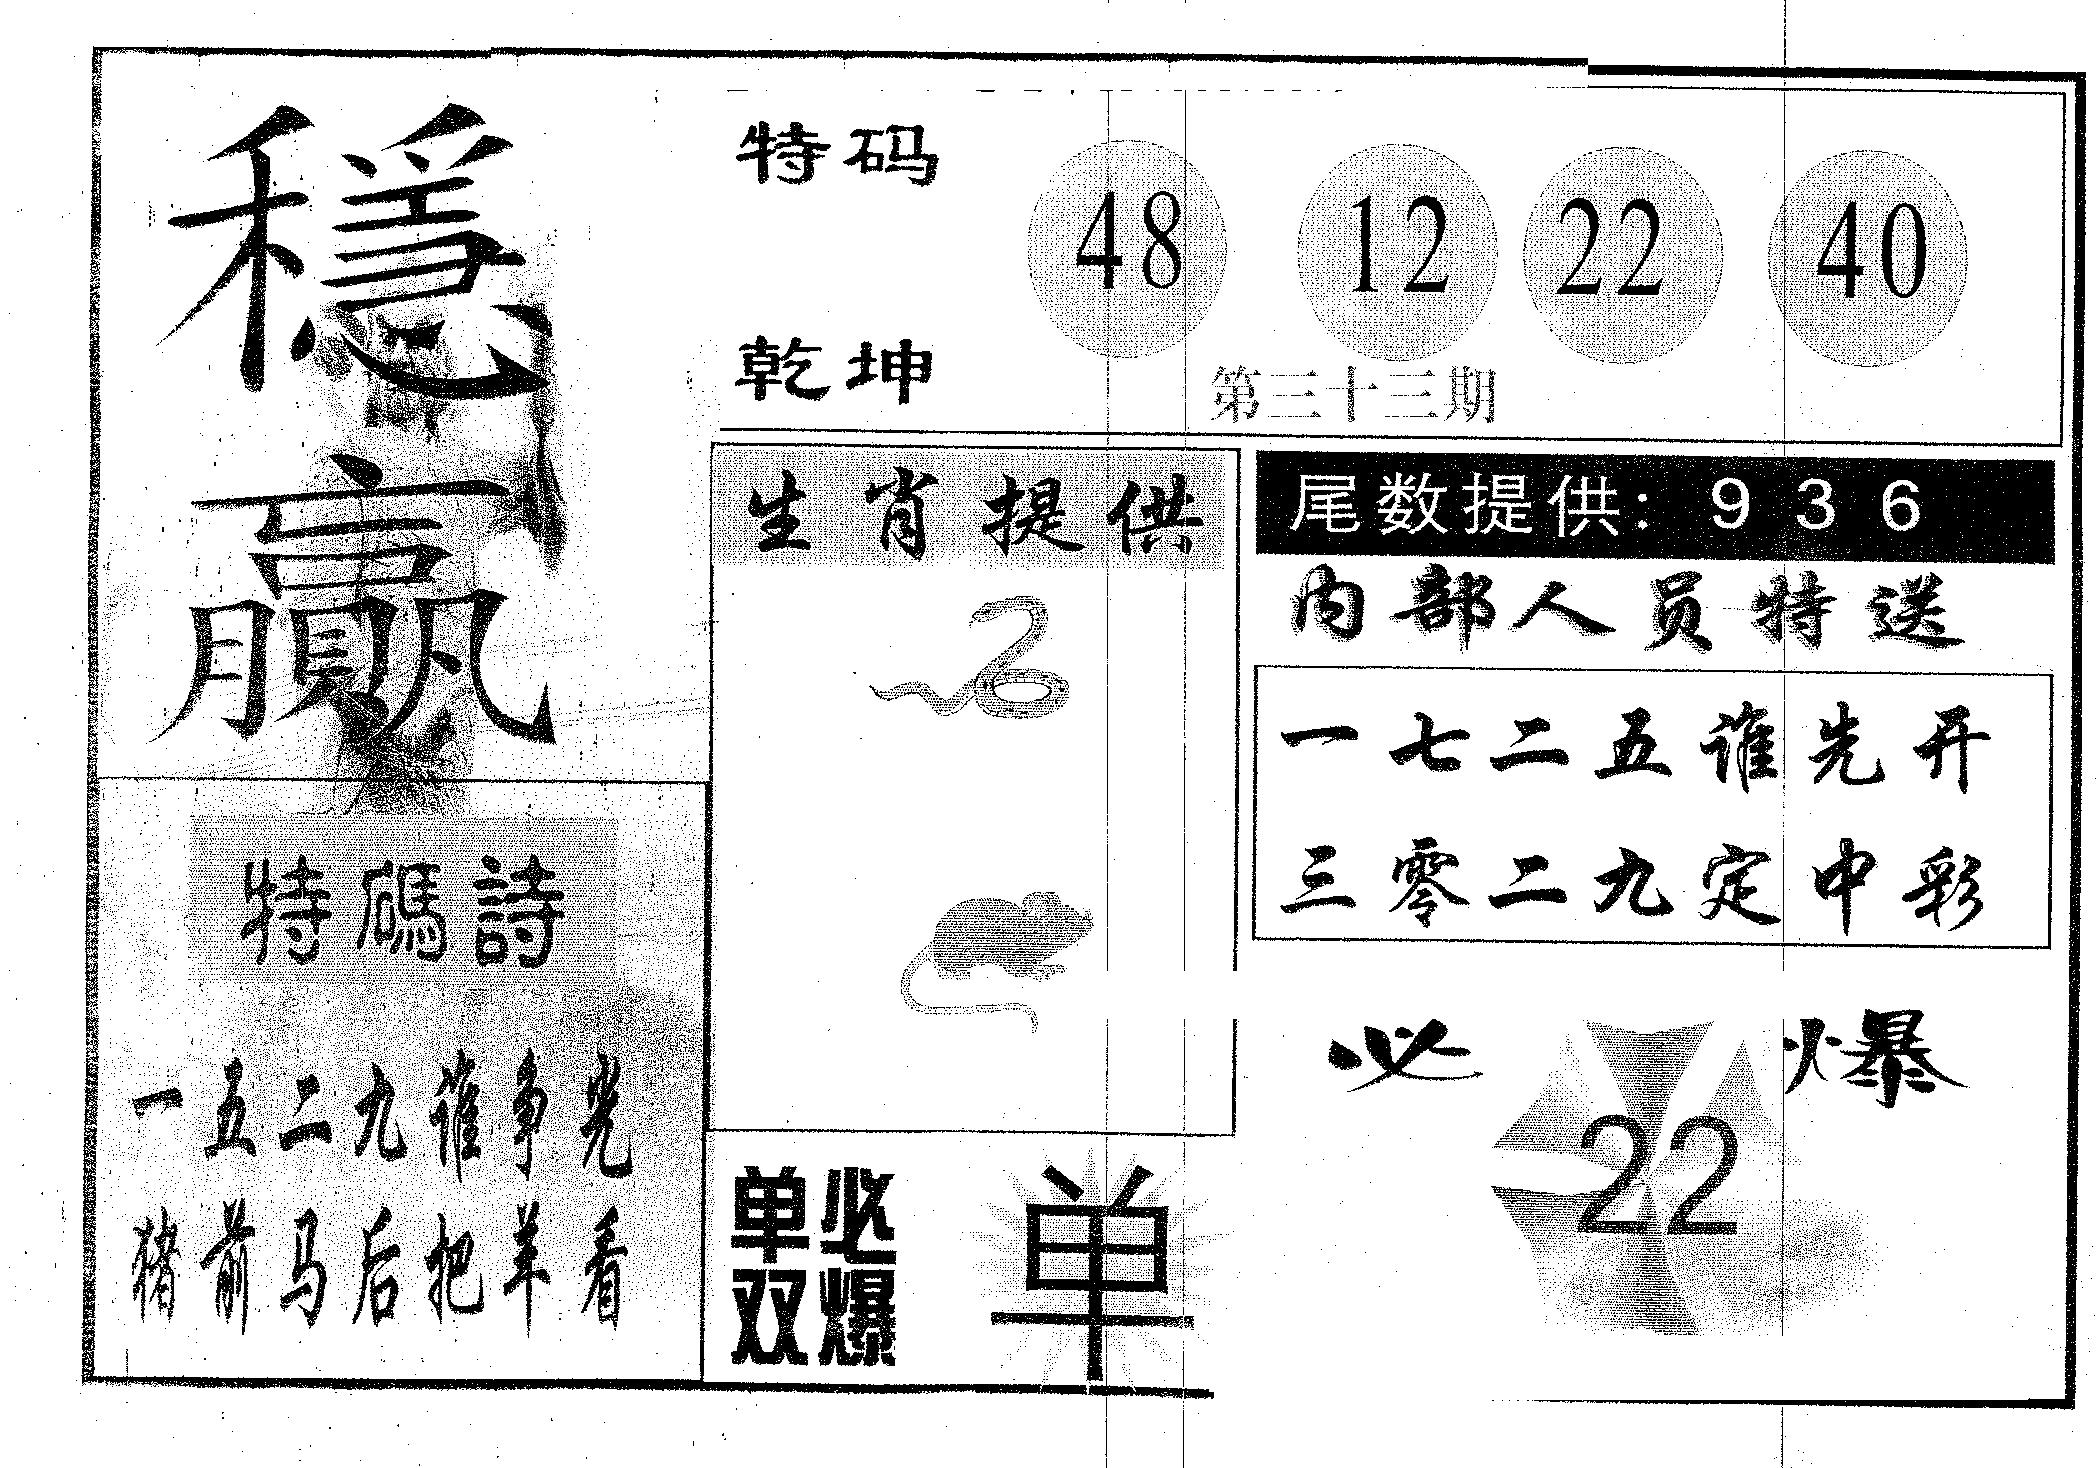 穩赢
特码
48 12 22 40
乾坤
第三十三期
生肖提供
尾数提供：936
内部人员特送
一七二五谁先开
三零二九定中彩
特碼詩
一五二九谁争光
猪前马后把羊看
单双必爆
单
必爆
22